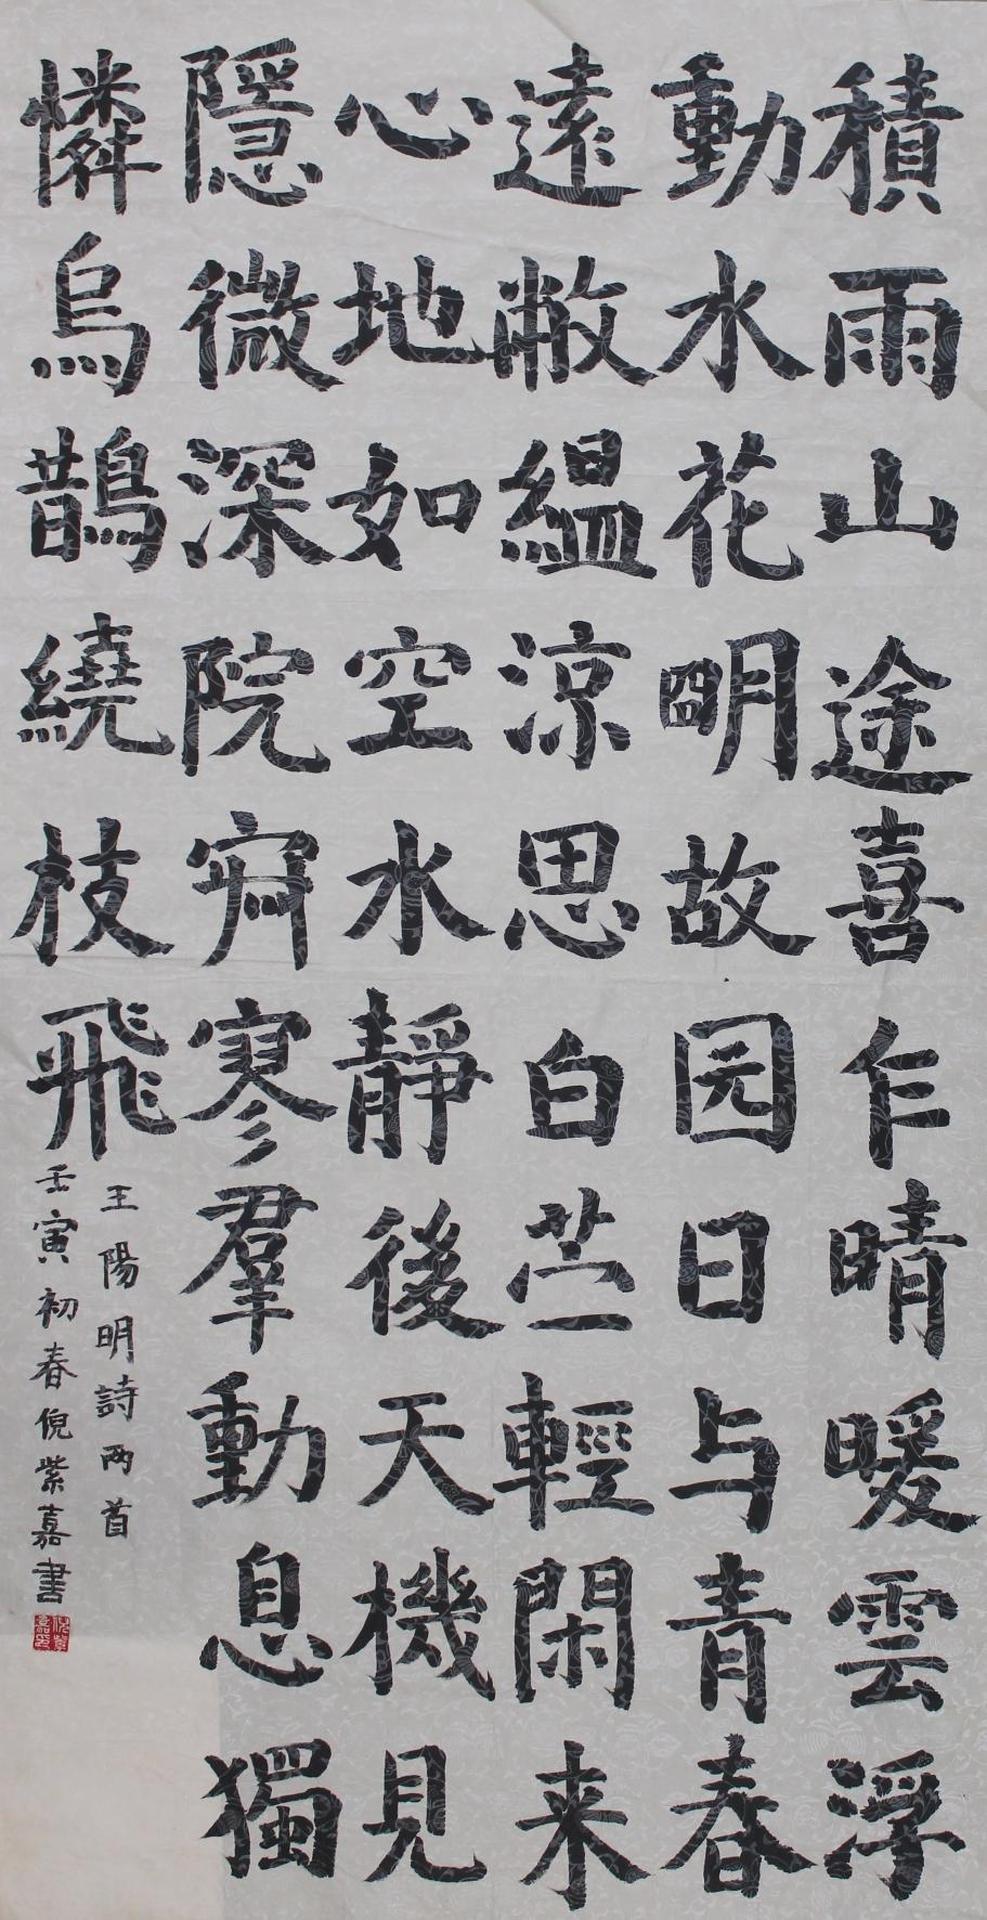 積雨山途喜乍晴暖雲浮
動水花明故园日与青春
遠敝緼涼思白苎輕閑来
心地如空水靜後天機見
隱微深院寂寒羣動息獨
憐烏鵲繞枝飛
王陽明詩两首
壬寅初春倪紫嘉書